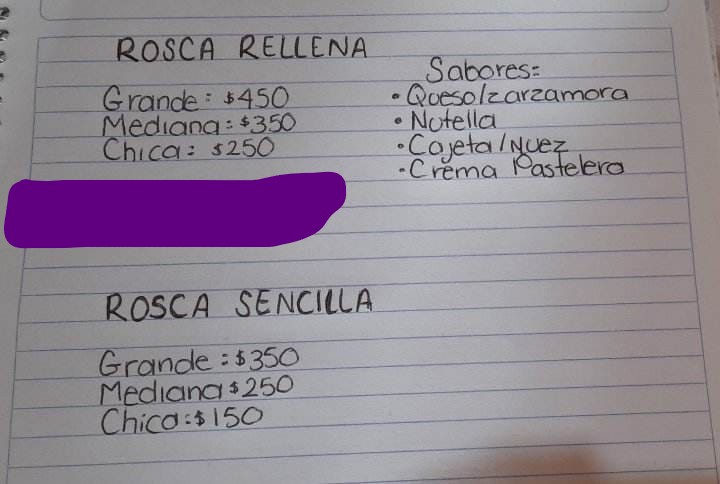 ROSCA RELLENA
Grande: $450
Mediana: $350
Chica: $250
Sabores:
• Queso/zarzamora
• Nutella
• Cajeta/Nuez
• Crema Pastelera
ROSCA SENCILLA
Grande: $350
Mediana $250
Chica: $150